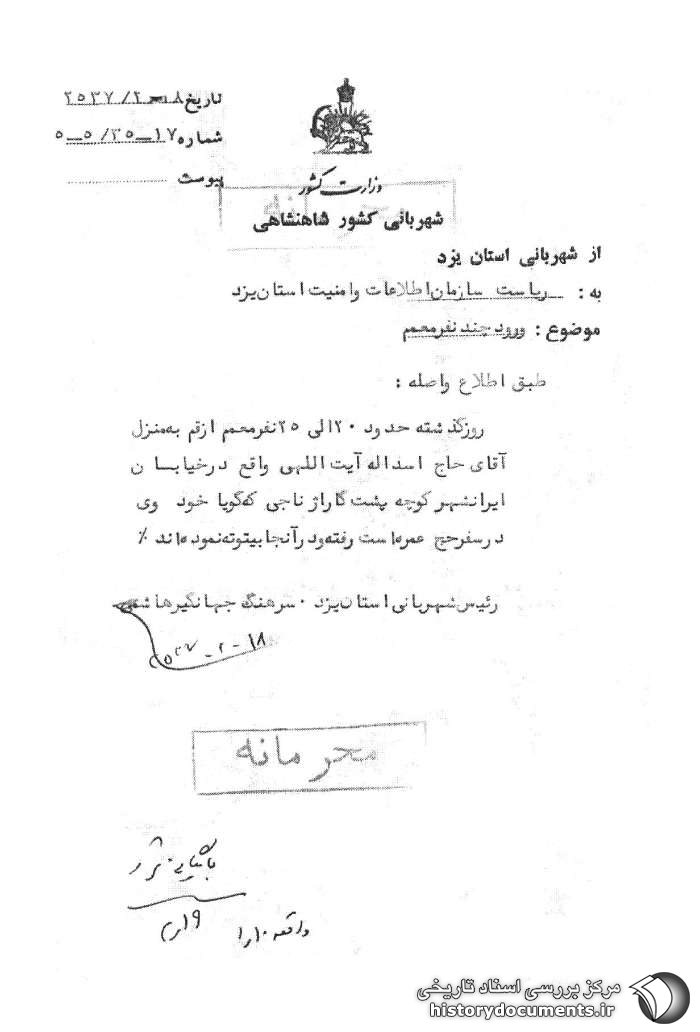 تاریخ ۱۸ـ۲/ ۲۵۳۷
شماره ۱۷ــ۳۵/ ۵ــ۵
پیوست
وزارت کشور
محرمانه
شهربانی کشور شاهنشاهی
از شهربانی استان یزد
به : ریاست سازمان اطلاعات وامنیت استان یزد
موضوع : ورود چند نفر معمم
طبق اطلاع واصله :
روزگذشته حدود ۲۰ الی ۲۵ نفر معمم ازقم به منزل
آقای حاج اسداله آیت اللهی واقع درخیابان
ایرانشهر کوچه پشت گاراژ ناجی که گویا خود وی
درسفر حج عمره است رفته و درآنجا بیتوته نموده اند ٪
رئیس شهربانی استان یزد ۰ سرهنگ جهانگیر هاشمی
۱۸ - ۲ - ۲۵۳۷
محرمانه
بایگانی شود
مرکز بررسی اسناد تاریخی
historydocuments.ir